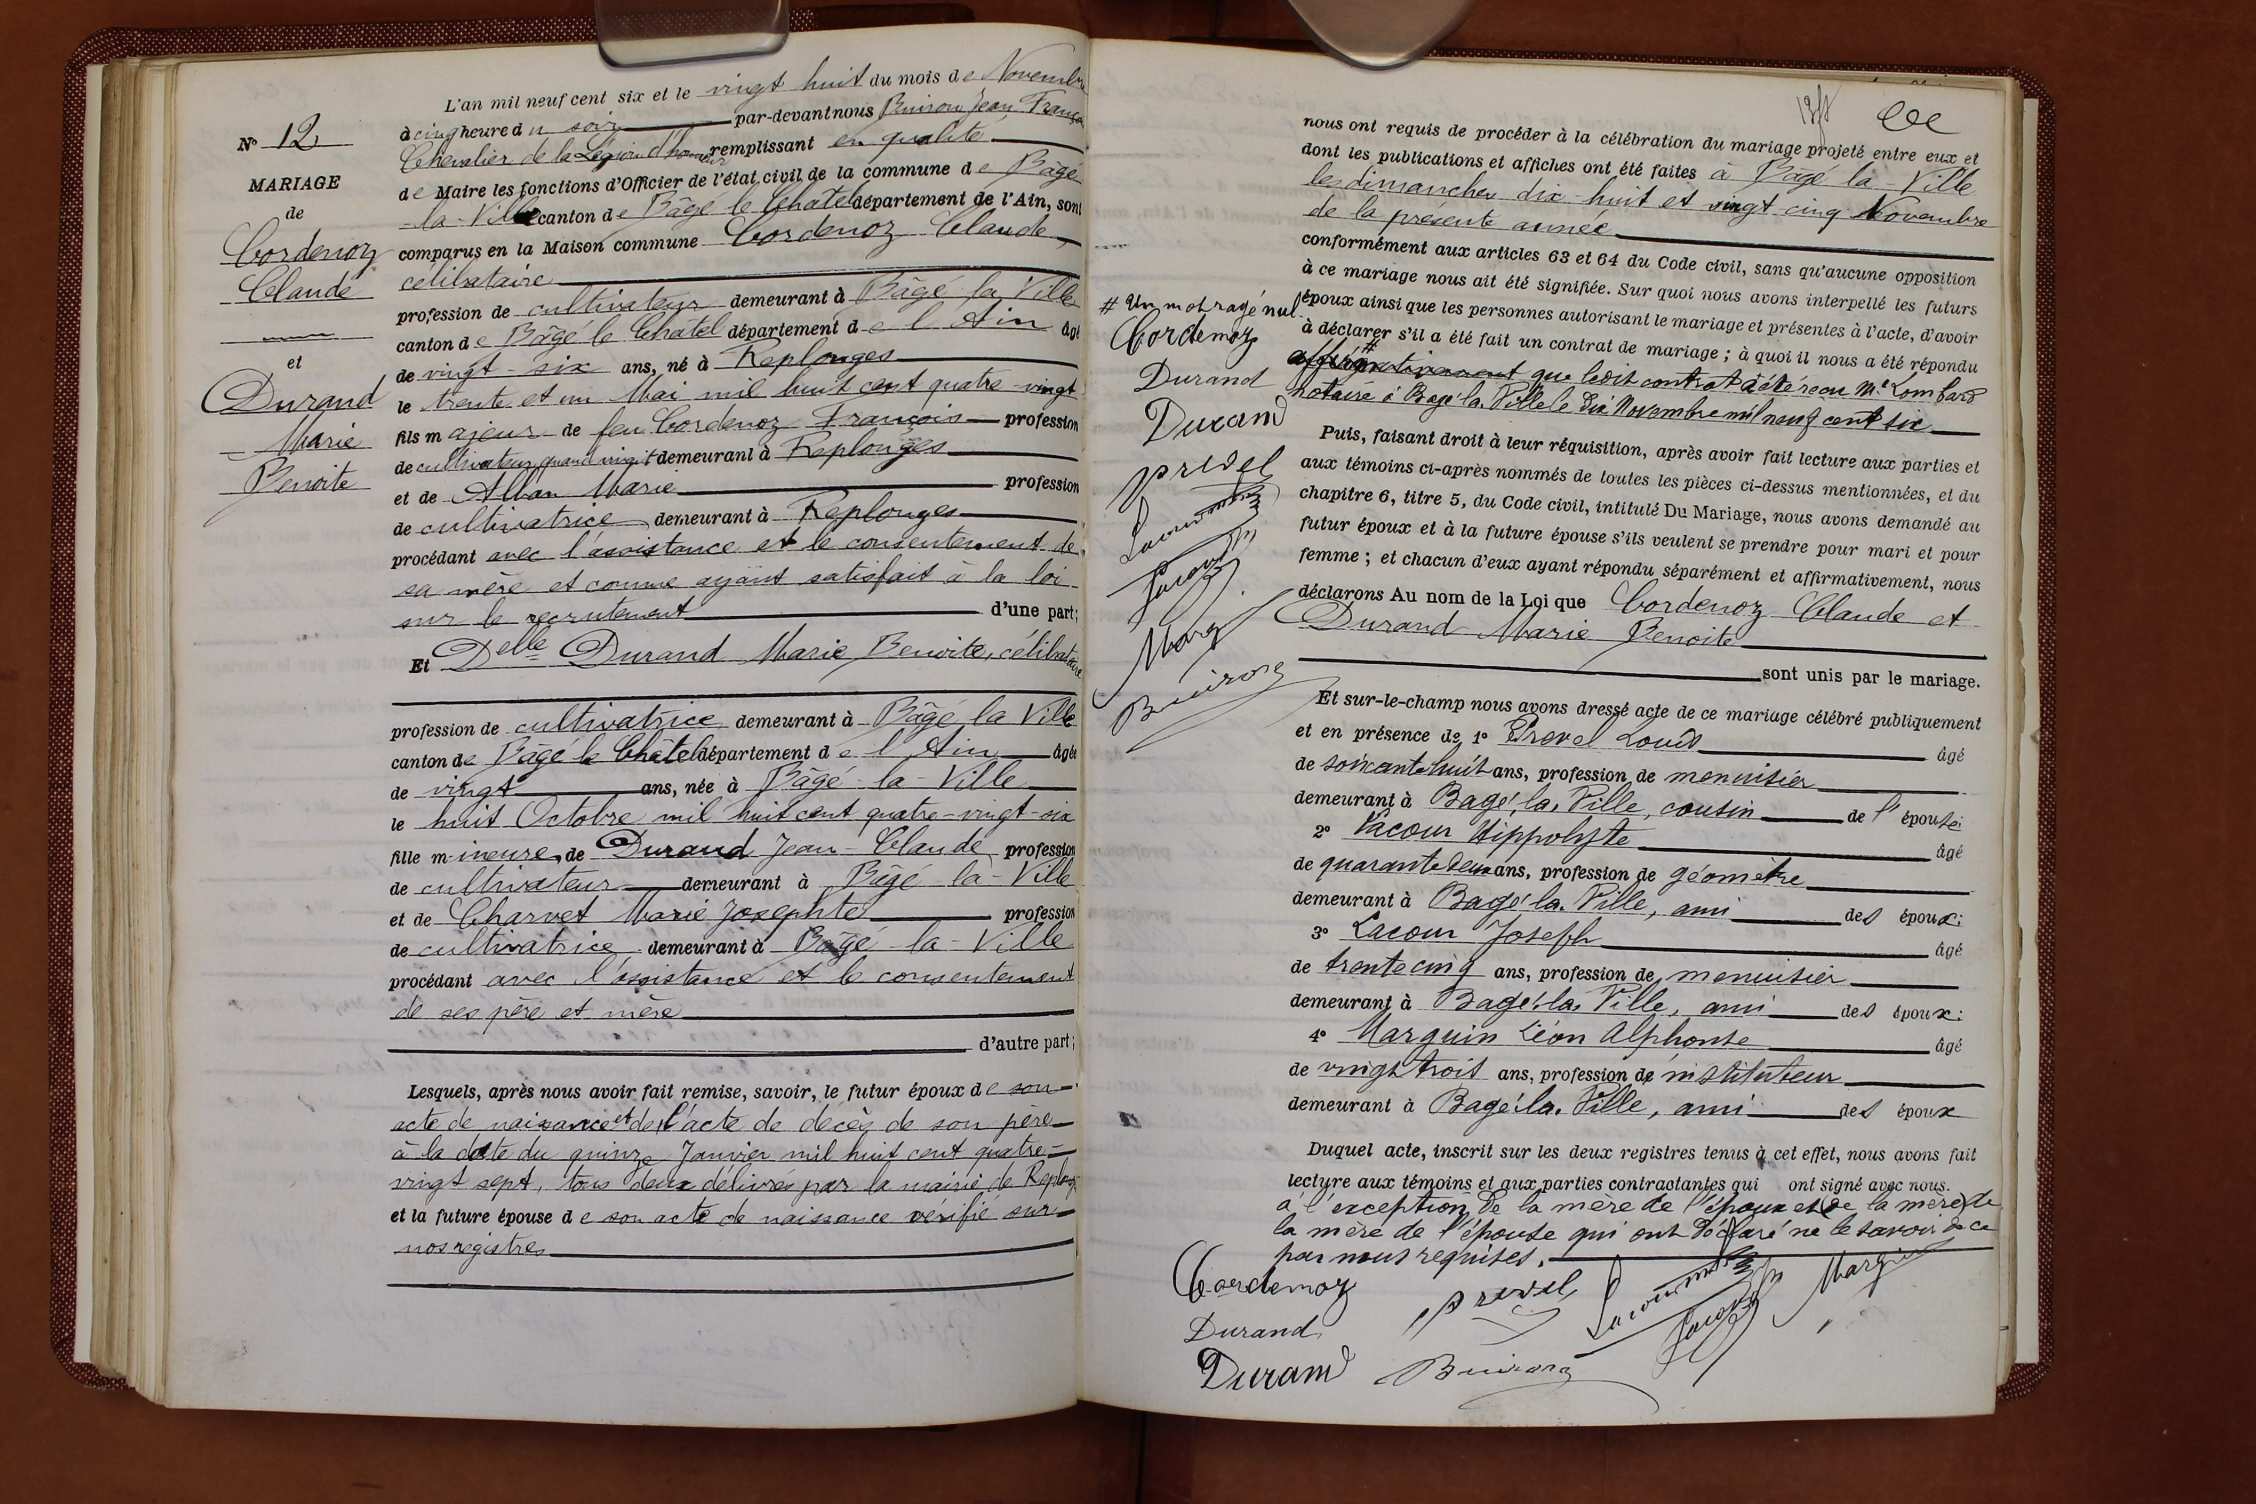 N° 12
MARIAGE
de
Cordenoz
Claude
et
Durand
Marie
Benoite
L'an mil neuf cent six et le vingt huit du mois de Novembre
à cinq heure du soir par-devant nous Buiron Jean, Franço
Chevalier de la Légion d'honneur remplissant en qualité
de Maire les fonctions d'Officier de l'état civil de la commune de Bâgé
-la-Ville canton de Bâgé le Chatel département de l'Ain, sont
comparus en la Maison commune Cordenoz Claude,
célibataire
profession de cultivateur demeurant à Bâgé la Ville
canton de Bâgé le Chatel département de l'Ain âgé
de vingt-six ans, né à Replonges
le trente et un Mai mil huit cent quatre-vingt
fils majeur de feu Cordenoz François profession
de cultivateur quand vivait demeurant à Replonges
et de Alban Marie profession
de cultivatrice demeurant à Replonges
procédant avec l'assistance et le consentement de
sa mère et comme ayant satisfait à la loi
sur le recrutement d'une part;
Et Delle Durand Marie Benoite, célibataire
profession de cultivatrice demeurant à Bâgé la Ville
canton de Bâgé le Chatel département de l'Ain âgée
de vingt ans, née à Bâgé-la-Ville
le huit Octobre mil huit cent quatre-vingt-six
fille mineure de Durand Jean-Claude profession
de cultivateur demeurant à Bâgé-la-Ville
et de Charvet Marie Josephte profession
de cultivatrice demeurant à Bâgé-la-Ville
procédant avec l'assistance et le consentement
de ses père et mère
d'autre part;
Lesquels, après nous avoir fait remise, savoir, le futur époux de son
acte de naissance et de l'acte de décès de son père
à la date du quinze Janvier mil huit cent quatre-
vingt sept, tous deux délivrés par la mairie de Replong
et la future épouse de son acte de naissance vérifié sur
nos registres
nous ont requis de procéder à la célébration du mariage projeté entre eux et
dont les publications et affiches ont été faites à Bâgé-la-Ville
les dimanches dix-huit et vingt cinq Novembre
de la présente année
conformément aux articles 63 et 64 du Code civil, sans qu'aucune opposition
à ce mariage nous ait été signifiée. Sur quoi nous avons interpellé les futurs
époux ainsi que les personnes autorisant le mariage et présentes à l'acte, d'avoir
à déclarer s'il a été fait un contrat de mariage; à quoi il nous a été répondu
# affirmativement que ledit contrat a été reçu Me Lombard
notaire à Bagé-la-Ville le dix Novembre mil neuf cent six
# Un mot rayé nul
Cordenoz
Durand
Durand
Prevel
Lacour
Lacour
Marg
Buiron
Puis, faisant droit à leur réquisition, après avoir fait lecture aux parties et
aux témoins ci-après nommés de toutes les pièces ci-dessus mentionnées, et du
chapitre 6, titre 5, du Code civil, intitulé Du Mariage, nous avons demandé au
futur époux et à la future épouse s'ils veulent se prendre pour mari et pour
femme; et chacun d'eux ayant répondu séparément et affirmativement, nous
déclarons Au nom de la Loi que Cordenoz Claude et
Durand Marie Benoite
sont unis par le mariage.
Et sur-le-champ nous avons dressé acte de ce mariage célébré publiquement
et en présence de 1° Prevel Louis âgé
de soixante huit ans, profession de menuisier
demeurant à Bagé-la-Ville, cousin de l'épouse;
2° Lacour Hippolyte âgé
de quarante deux ans, profession de géomètre
demeurant à Bagé-la-Ville, ami des époux;
3° Lacour Joseph âgé
de trente cinq ans, profession de menuisier
demeurant à Bagé-la-Ville, ami des époux;
4° Marguin Léon Alphonse âgé
de vingt trois ans, profession de instituteur
demeurant à Bagé-la-Ville, ami des époux
Duquel acte, inscrit sur les deux registres tenus à cet effet, nous avons fait
lecture aux témoins et aux parties contractantes qui ont signé avec nous.
à l'exception de la mère de l'époux et (de la mère) de
la mère de l'épouse qui ont déclaré ne le savoir de ce
par nous requises.
Cordenoz
Prevel
Lacour
Lacour
Marguin
Durand
Durand
Buiron